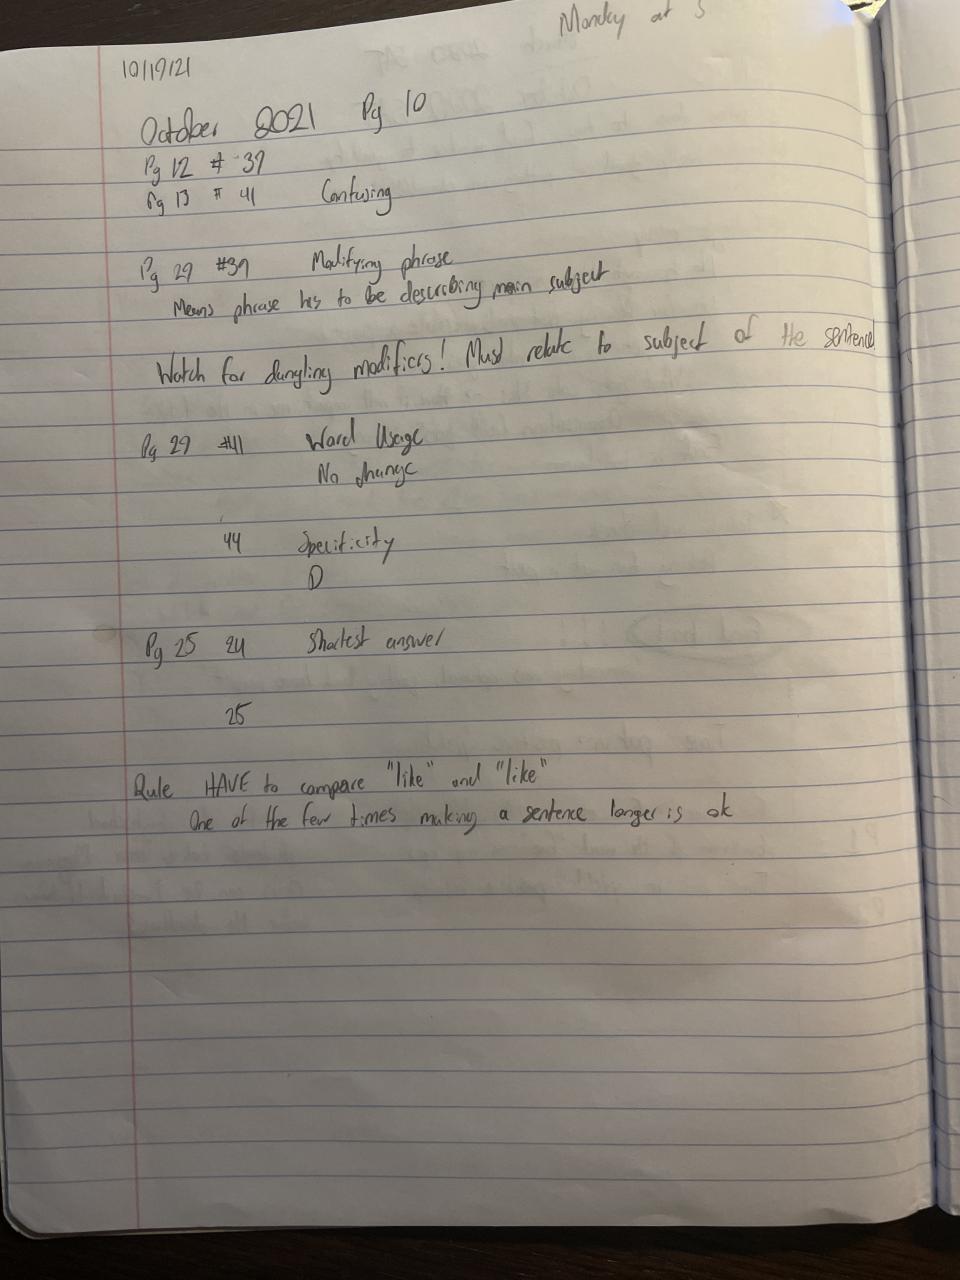 Monday at 5
10/19/21
October 2021 Pg 10
Pg 12 # 39
Pg 13 # 41 Confusing
Pg 29 #39 Modifying phrase
Means phrase has to be describing main subject
Watch for dangling modifiers! Must relate to subject of the sentence
Pg 29 #41 Word Usage
No change
44 Specificity
D
Pg 25 24 Shortest answer
25
Rule HAVE to compare "like" and "like"
One of the few times making a sentence longer is ok